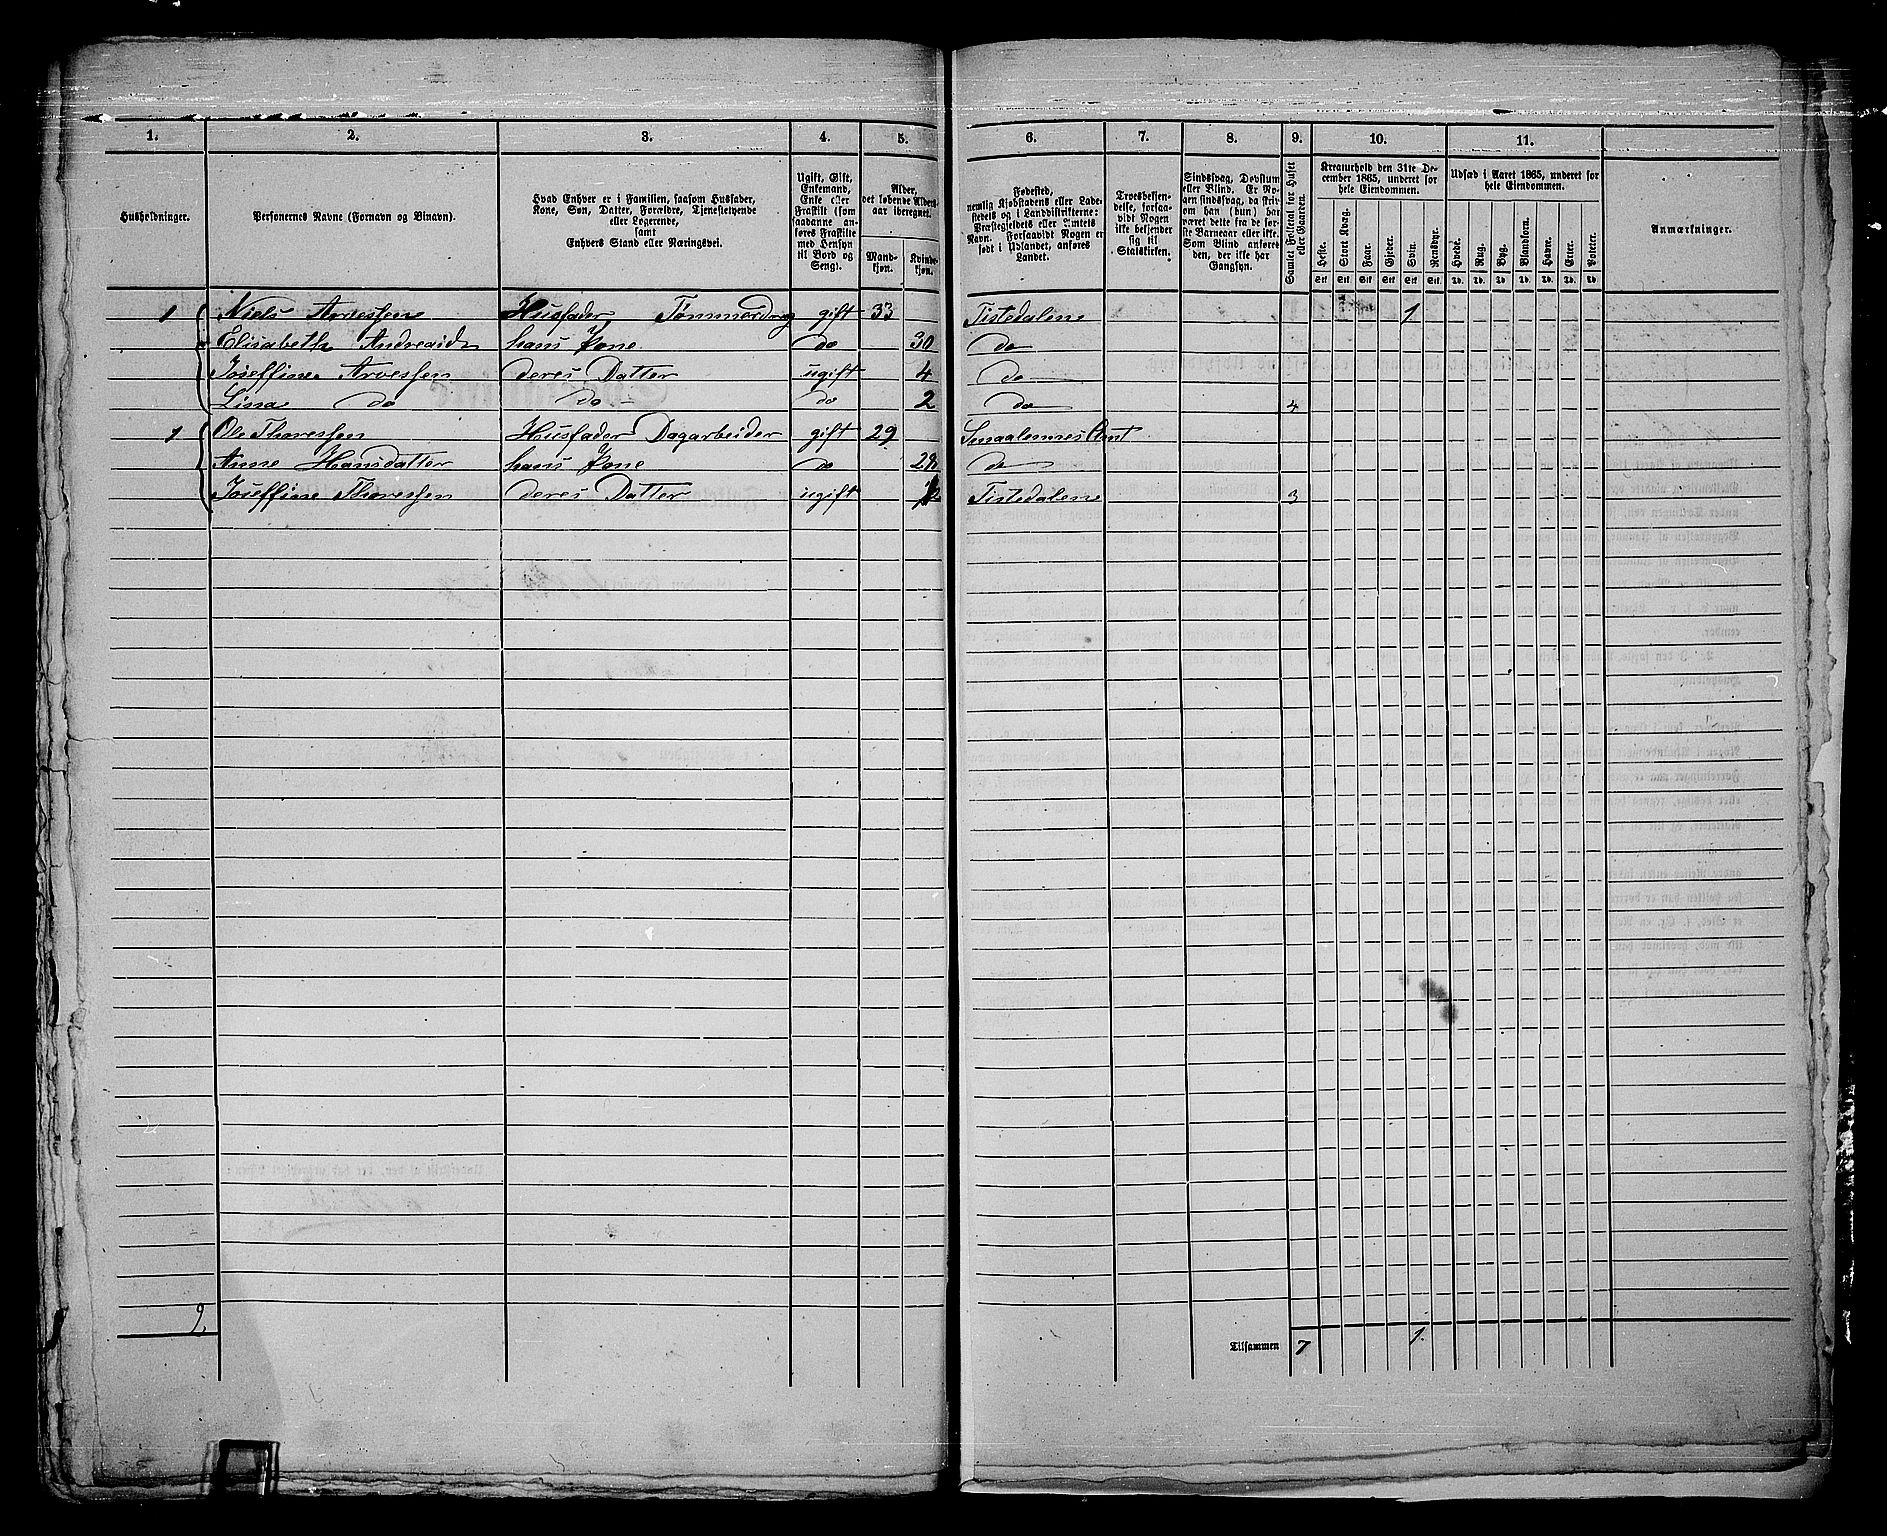 1. 2. 3. 4. 5. 6. 7. 8. 9. 10. 11.
Husholdninger.
Personernes Navne (Fornavn og Binavn).
Hvad Enhver er i Familien, saasom Husfader,
Kone, Søn, Datter, Forældre, Tjenestetyende
eller Logerende,
samt
Enhvers Stand eller Næringsvei.
Ugift, Gift,
Enkemand,
Enke eller
Fraskilt (som
saadanne an-
føres Fraskilte
med Hensyn
til Bord og
Seng).
Alder,
det løbende Alders-
aar iberegnet.
Mand-
kjøn.
Kvinde-
kjøn.
Fødested,
nemlig Kjøbstadens eller Lade-
stedets og i Landdistrikterne:
Præstegjeldets eller Amtets
Navn. Forsaavidt Nogen er
født i Udlandet, anføres
Landet.
Troesbekjen-
delse, forsaa-
vidt Nogen
ikke bekjender
sig til
Statskirken.
Sindssvag, Døvstum
eller Blind. Er No-
gen sindssvag, da skriv
om han (hun) har
været dette fra de før-
ste Barneaar eller ikke.
Som Blind anføre
den, der ikke har
Gangsyn.
Samlet Folketal for Huset
eller Gaarden.
Kreaturhold den 31te De-
cember 1865, underet for
hele Eiendommen.
Heste. Stort Kvæg. Faar. Gjeder. Svin. Rensdyr.
Stk. Stk. Stk. Stk. Stk. Stk.
Udsæd i Aaret 1865, underet for
hele Eiendommen.
Hvede. Rug. Byg. Blandkorn. Havre. Erter. Poteter.
Td. Td. Td. Td. Td. Td. Td.
Anmærkninger.
1 Niels Arvessen Husfader Tømmerdrag gift 33 Tistedalen 1
Elisabeth hans Kone do 30 do
Joseffine Arvessen deres Datter ugift 4 do
Lina do do do 2 do 4
1 Ole Thoressen Husfader Dagarbeider gift 29 Smaalennes Amt
Anne Hansdatter hans Kone do do
Joseffine Thoressen deres Datter ugift Tistedalen 3
2 Tilsammen 7 1.